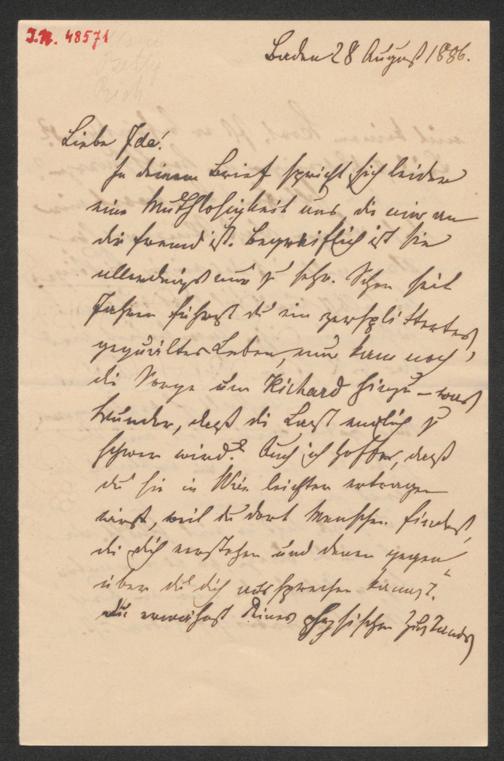 I.N. 48571
Baden 28 August 1886.
Liebe Ida!
In deinem Brief spricht sich leider
eine Muthlosigkeit aus die mir an
dir fremd ist. Begreiflich ist sie
allerdings nur zu sehr. Schon seit
Jahren führst du ein zersplittertes,
gequältes Leben, nun kam noch
die Sorge um Richard hinzu – was
Wunder, daß die Last endlich zu
schwer wird? Auch ich hoffte, daß
du sie in Wien leichter ertragen
wirst, weil du dort Menschen findest,
die dich verstehen und denen gegen
über du dich aussprechen kannst.
Du erwähnst deines physischen Zustands